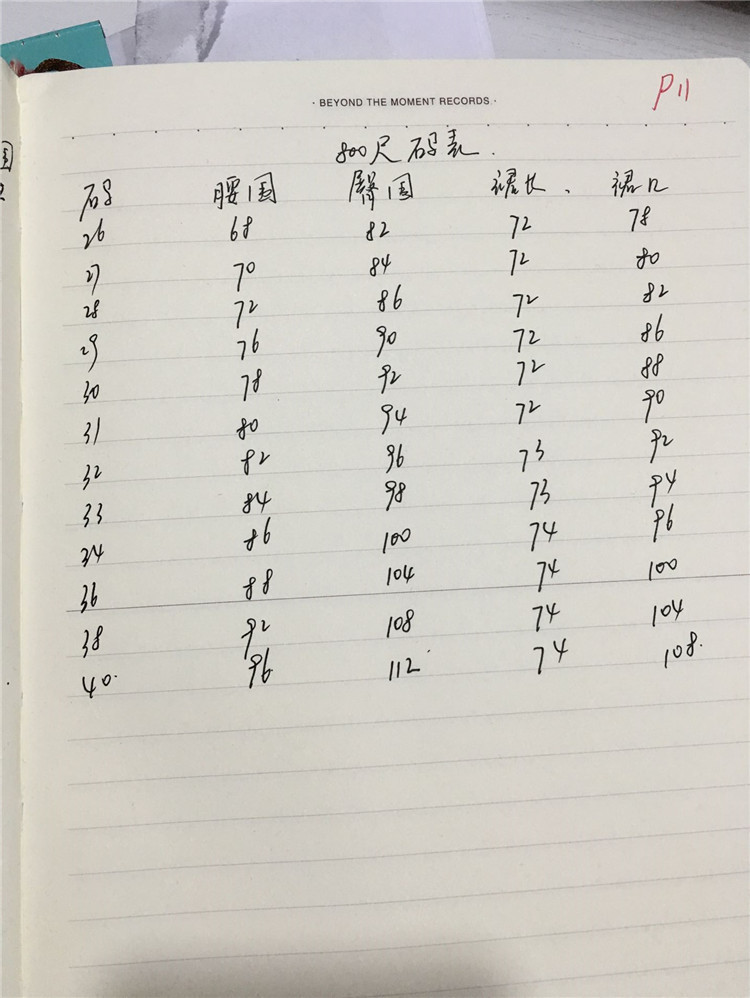 · BEYOND THE MOMENT RECORDS ·
P11
800尺码表.
码 腰围 臀围 裙长、 裙口
26 68 82 72 78
27 70 84 72 80
28 72 86 72 82
29 76 90 72 86
30 78 92 72 88
31 80 94 72 90
32 82 96 73 92
33 84 98 73 94
34 86 100 74 96
36 88 104 74 100
38 92 108 74 104
40. 96 112 74 108.